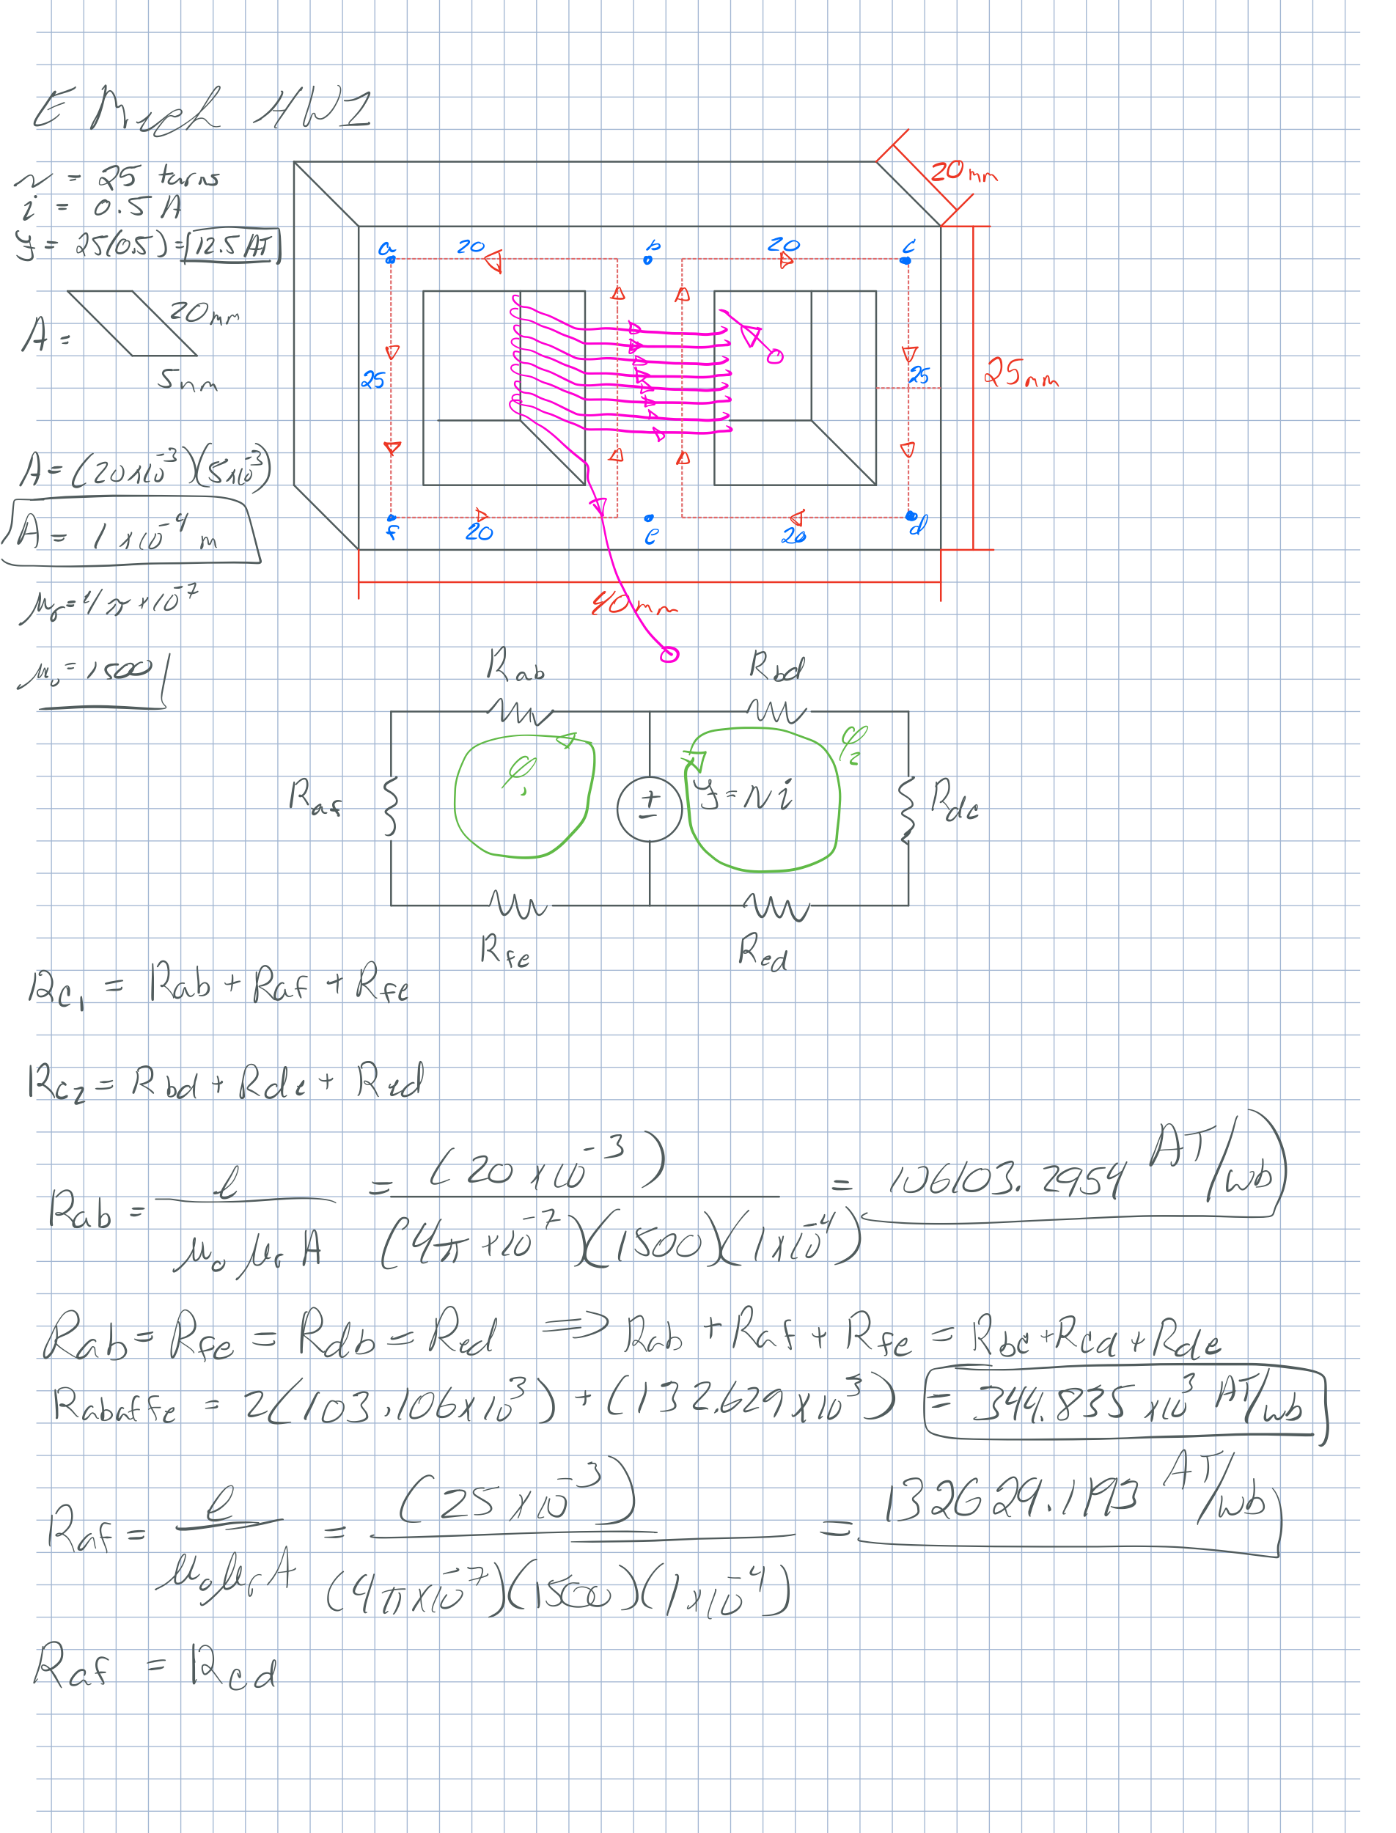 E Mech HW1
n = 25 turns
i = 0.5 A
F = 25(0.5) = 12.5 AT
A =
20mm
5mm
A = (20x10^-3)(5x10^-3)
A = 1 x10^-4 m
μr = 4π x10^-7
μo = 1500
20mm
a 20 b 20 c
25
25
25mm
f 20 e 20 d
40mm
Rab Rbd
φ1 φ2
Raf + - F = Ni Rdc
Rfe Red
Rc1 = Rab + Raf + Rfe
Rc2 = Rbd + Rdc + Red
Rab = l / μo μr A = (20 x10^-3) / (4π x10^-7)(1500)(1x10^-4) = 106103.2954 AT/wb
Rab = Rfe = Rdb = Red ⇒ Rab + Raf + Rfe = Rbc + Rcd + Rde
Rabaffe = 2(103.106x10^3) + (132.629x10^3) = 344.835 x10^3 AT/wb
Raf = l / μoμrA = (25x10^-3) / (4πx10^-7)(1500)(1x10^-4) = 132629.1193 AT/wb
Raf = Rcd